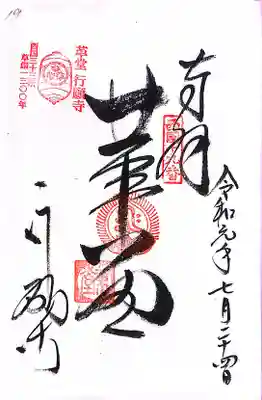 奉拝
西国十九番
令和元年七月二十四日
革堂
革堂 行願寺
行願寺
西国三十三所
草創一三〇〇年